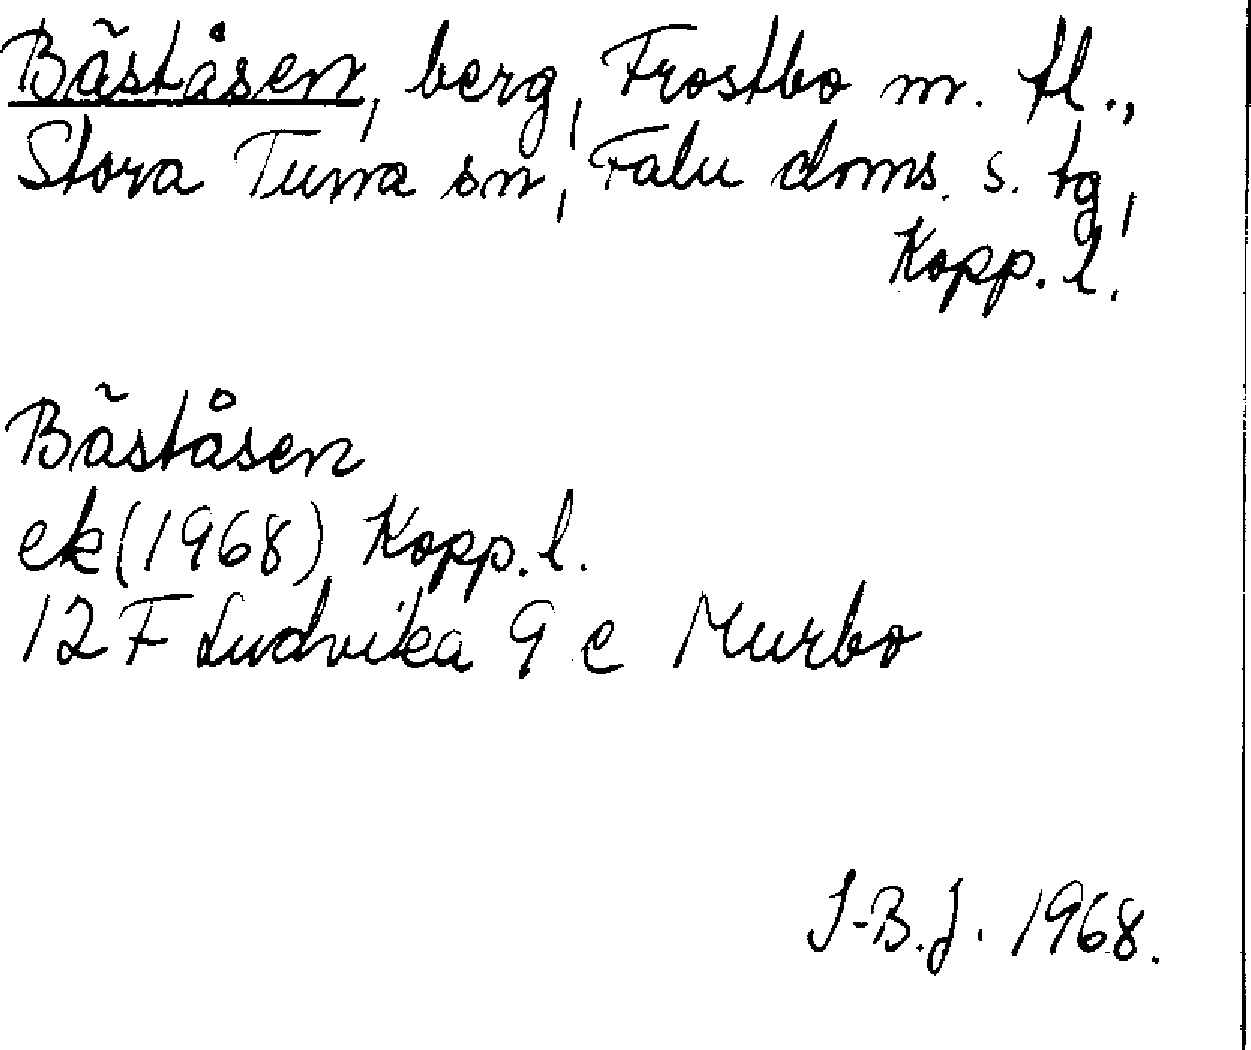 Båståsen, berg, Frostbo m. fl.,
Stora Tuna sn, Falu doms. s. tg,
Kopp. l.
Bãståsen
ek (1968) Kopp. l.
12 F Ludvika 9 e Murbo
I-B.J. 1968.